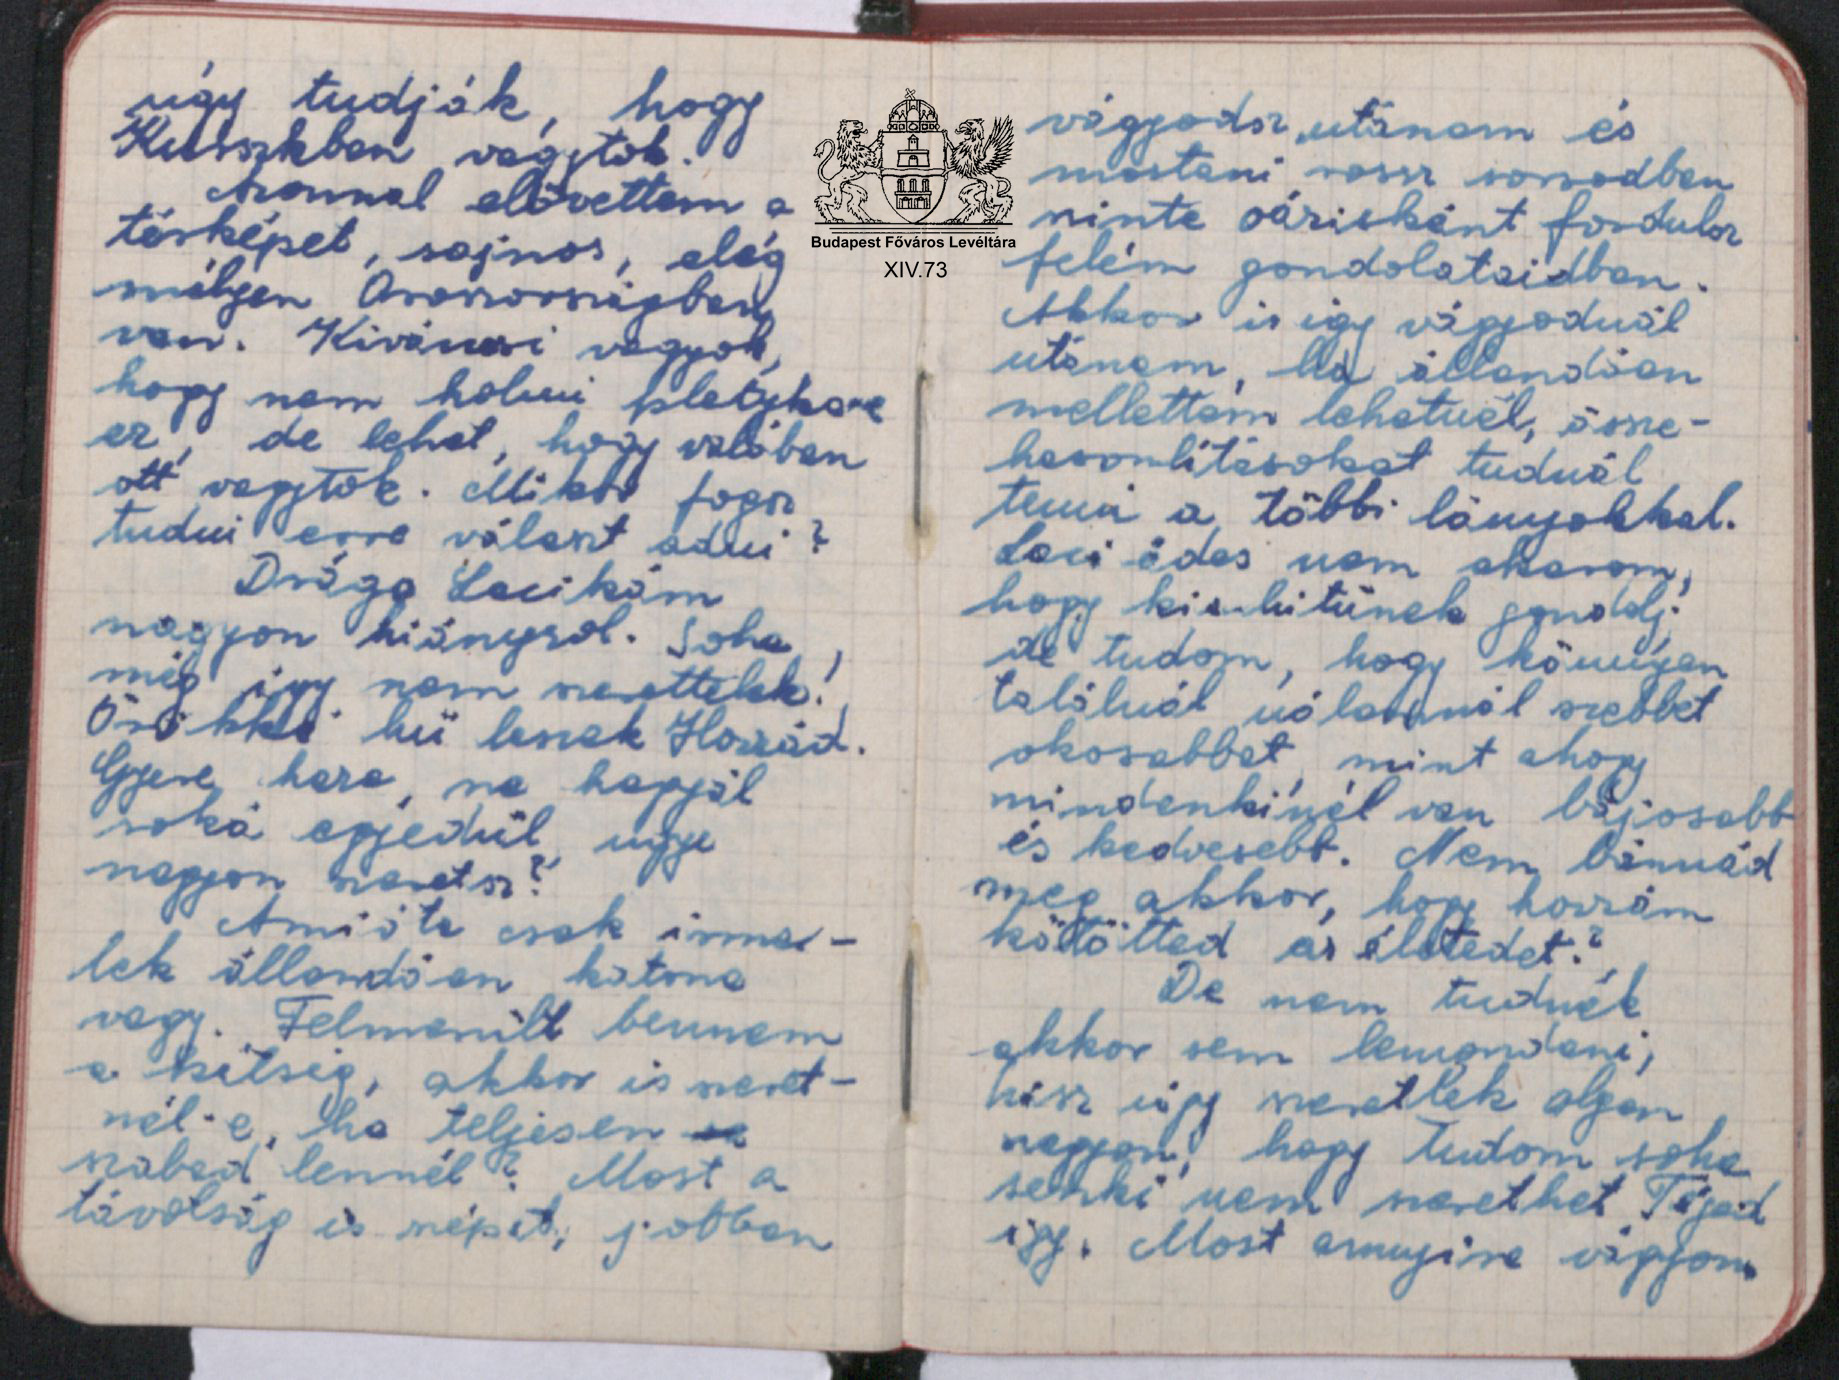 úgy tudják, hogy
Kurszkban vagytok.
Azonnal elővettem a
térképet, sajnos, elég
mélyen Oroszországban
van. Kiváncsi vagyok,
hogy nem holmi pletyka-e
ez, de lehet, hogy valóban
ott vagytok. Mikor fogsz
tudni erre választ adni?
Drága Lacikám
nagyon hiányzol. Soha
még így nem szerettelek!
Örökké hű leszek Hozzád.
Gyere haza, ne hagyjál
soká egyedül, ugye
nagyon szeretsz?
Amióta csak isme-
lek állandóan katona
vagy. Felmerült bennem
a kétség, akkor is szeret-
nél-e, ha teljesen
szabad lennél? Most a
távolság is szépít, jobban
Budapest Főváros Levéltára
XIV.73
vágyodsz utánam és
mostani rossz sorsodban
szinte óriásként fordulsz
felém gondolataidban.
Akkor is így vágyodnál
utánam, ha állandóan
mellettem lehetnél, össze-
hasonlításokat tudnál
tenni a többi lányokkal.
Laci édes nem akarom,
hogy kishitűnek gondolj,
de tudom, hogy könnyen
találnál nálamnál szebbet
okosabbat, mint ahogy
mindenkinél van bájosabb
és kedvesebb. Nem bánnád
meg akkor, hogy hozzám
kötötted az életedet?
De nem tudnék
akkor sem lemondani,
hisz úgy szeretlek olyan
nagyon, hogy tudom soha
senki nem szerethet Téged
így. Most annyira vágyom